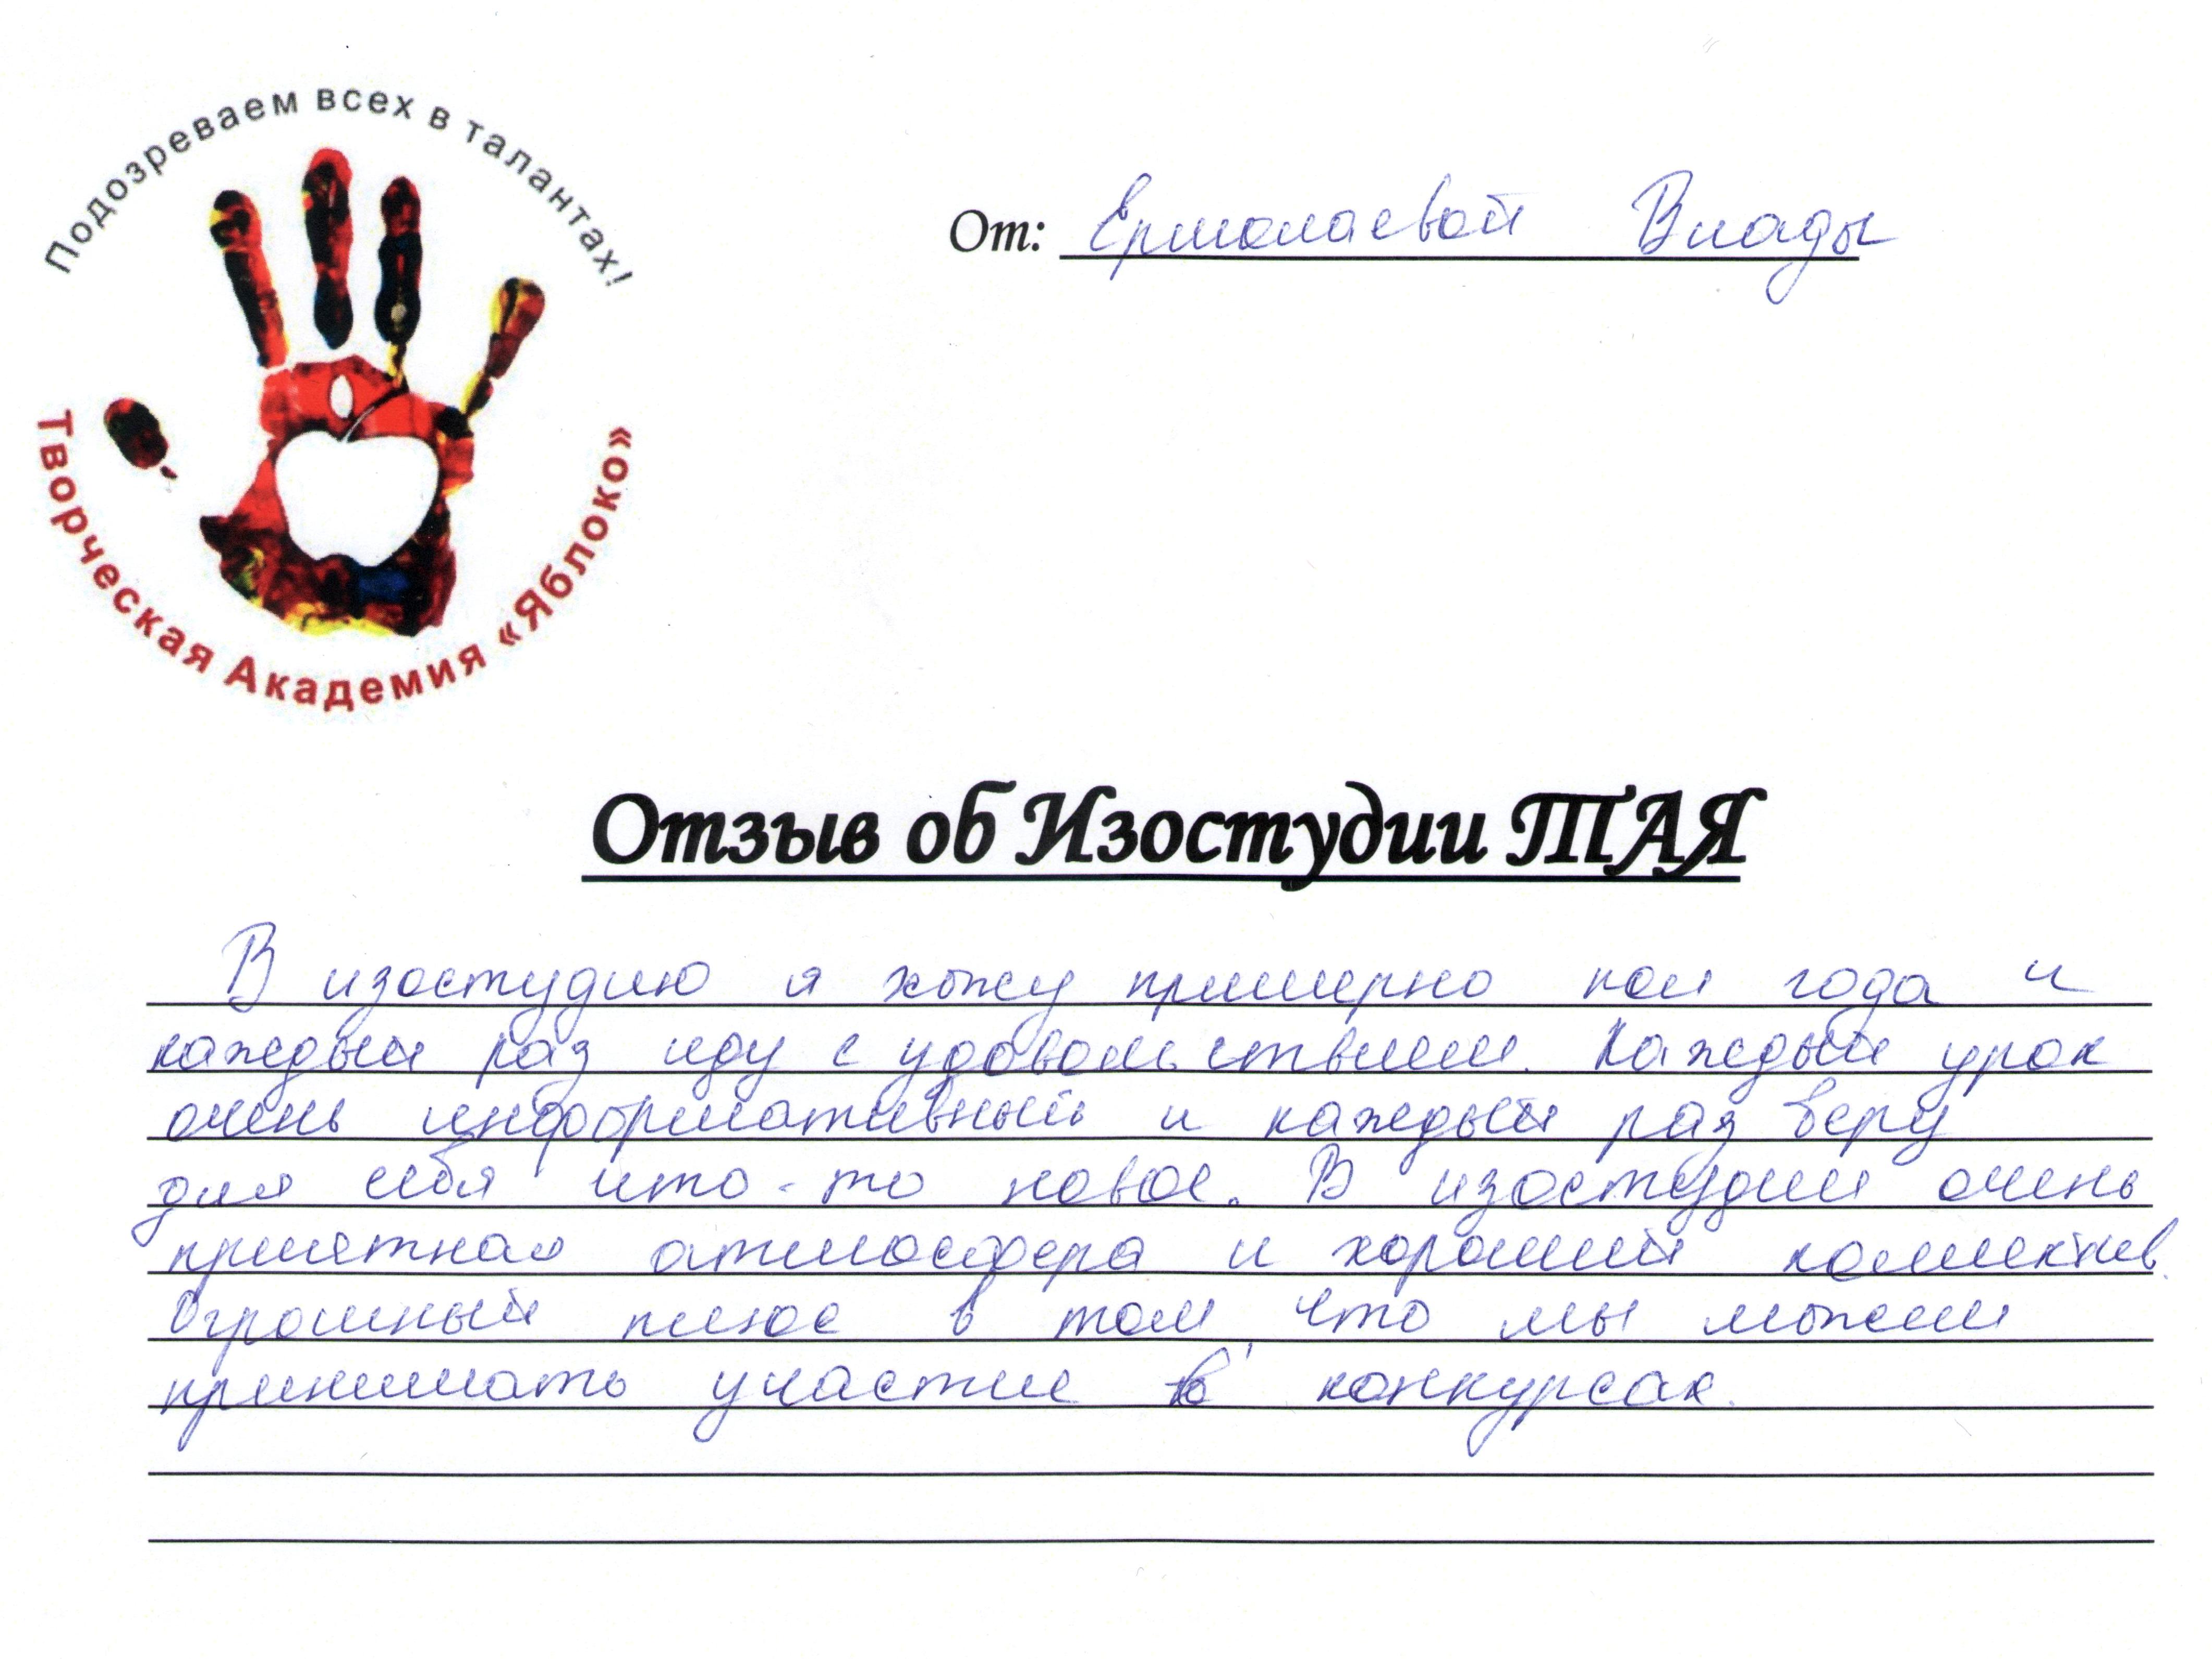 Подозреваем всех в талантах!
Творческая Академия «Яблоко»
От: Ермолаевой Влады
Отзыв об Изостудии ТАЯ
В изостудию я хожу примерно пол года и
каждый раз иду с удовольствием. Каждый урок
очень информативный и каждый раз беру
для себя что-то новое. В изостудии очень
приятная атмосфера и хороший коллектив.
Огромный плюс в том, что мы можем
принимать участие в конкурсах.